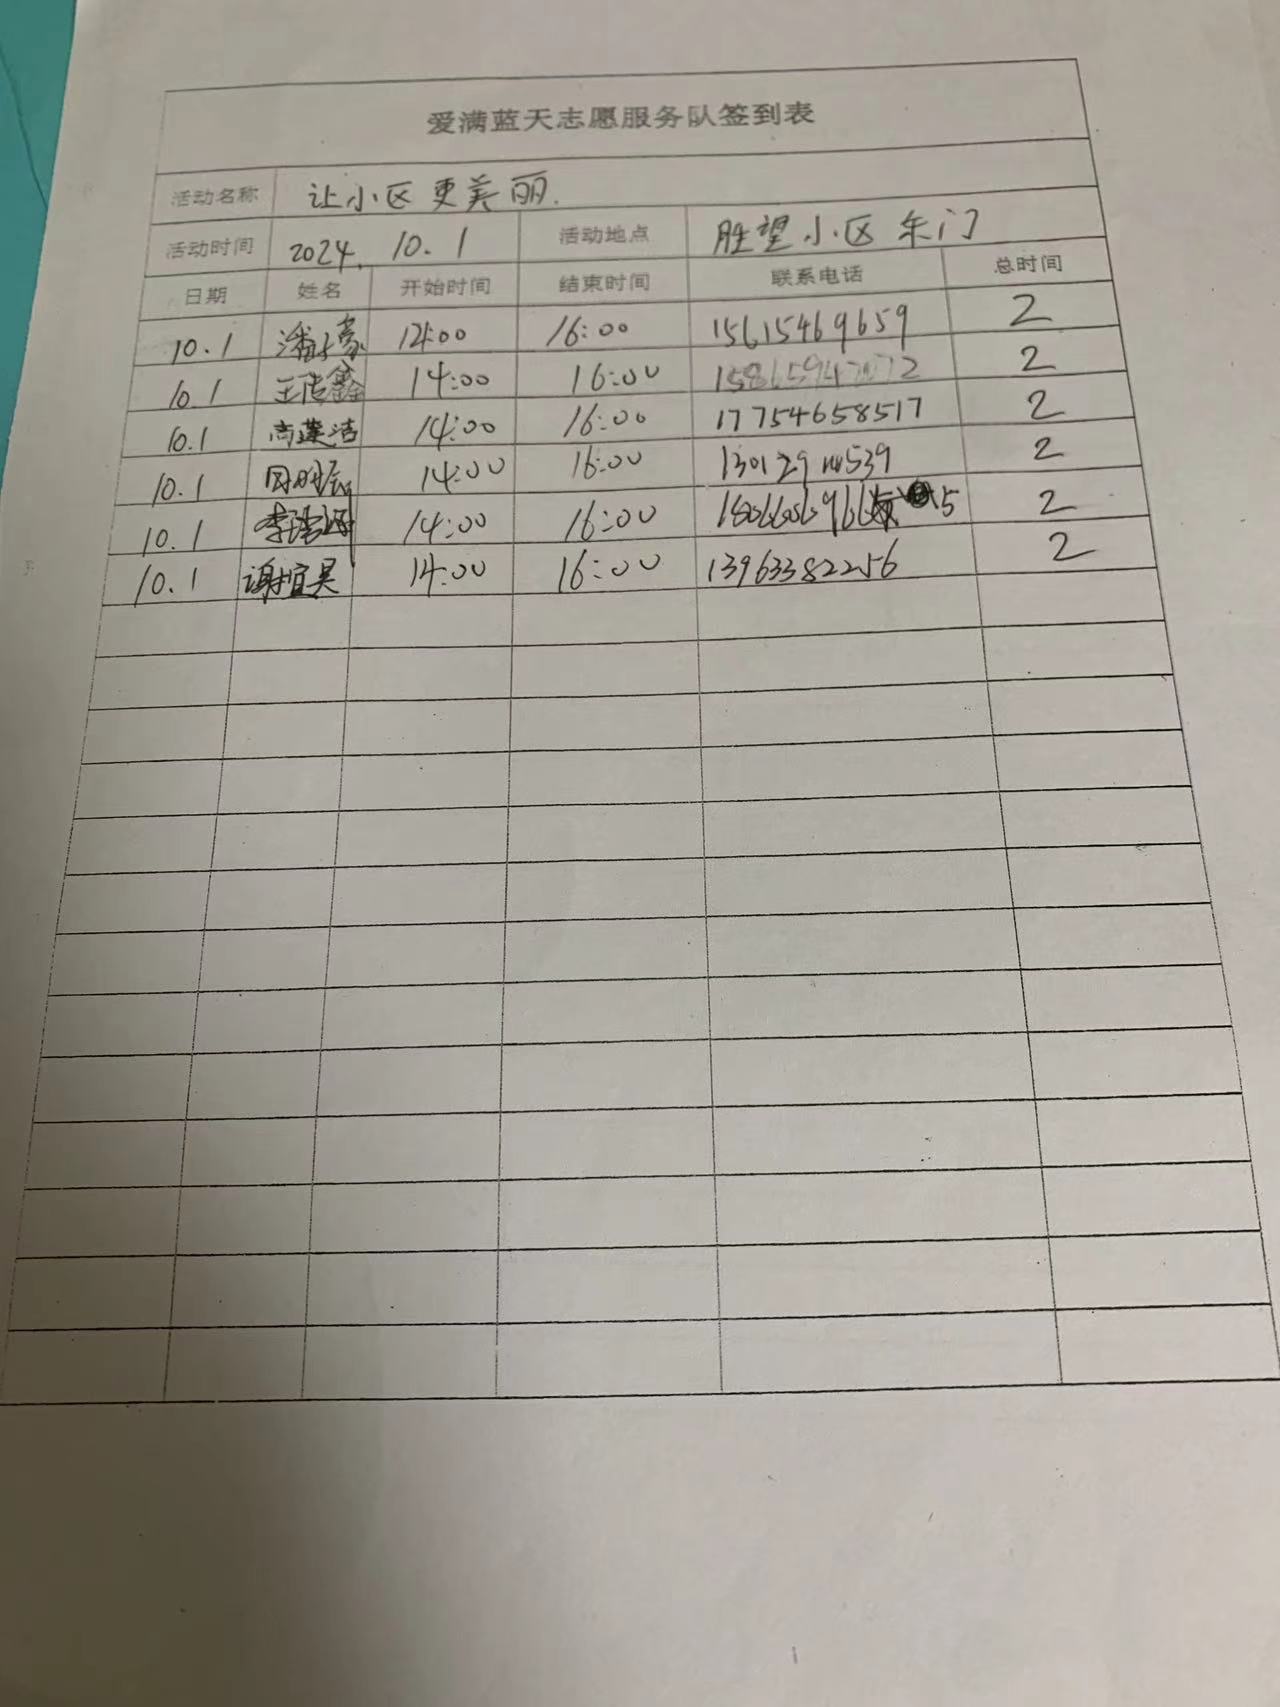 爱满蓝天志愿服务队签到表
活动名称 让小区更美丽.
活动时间 2024. 10.1 活动地点 胜望小区东门
日期 姓名 开始时间 结束时间 联系电话 总时间
10.1 14:00 16:00 15615469659 2
10.1 王传鑫 14:00 16:00 2
10.1 高莲洁 14:00 16:00 17754658517 2
10.1 14:00 16:00 2
10.1 14:00 16:00 2
10.1 谢宜昊 14:00 16:00 13963382256 2